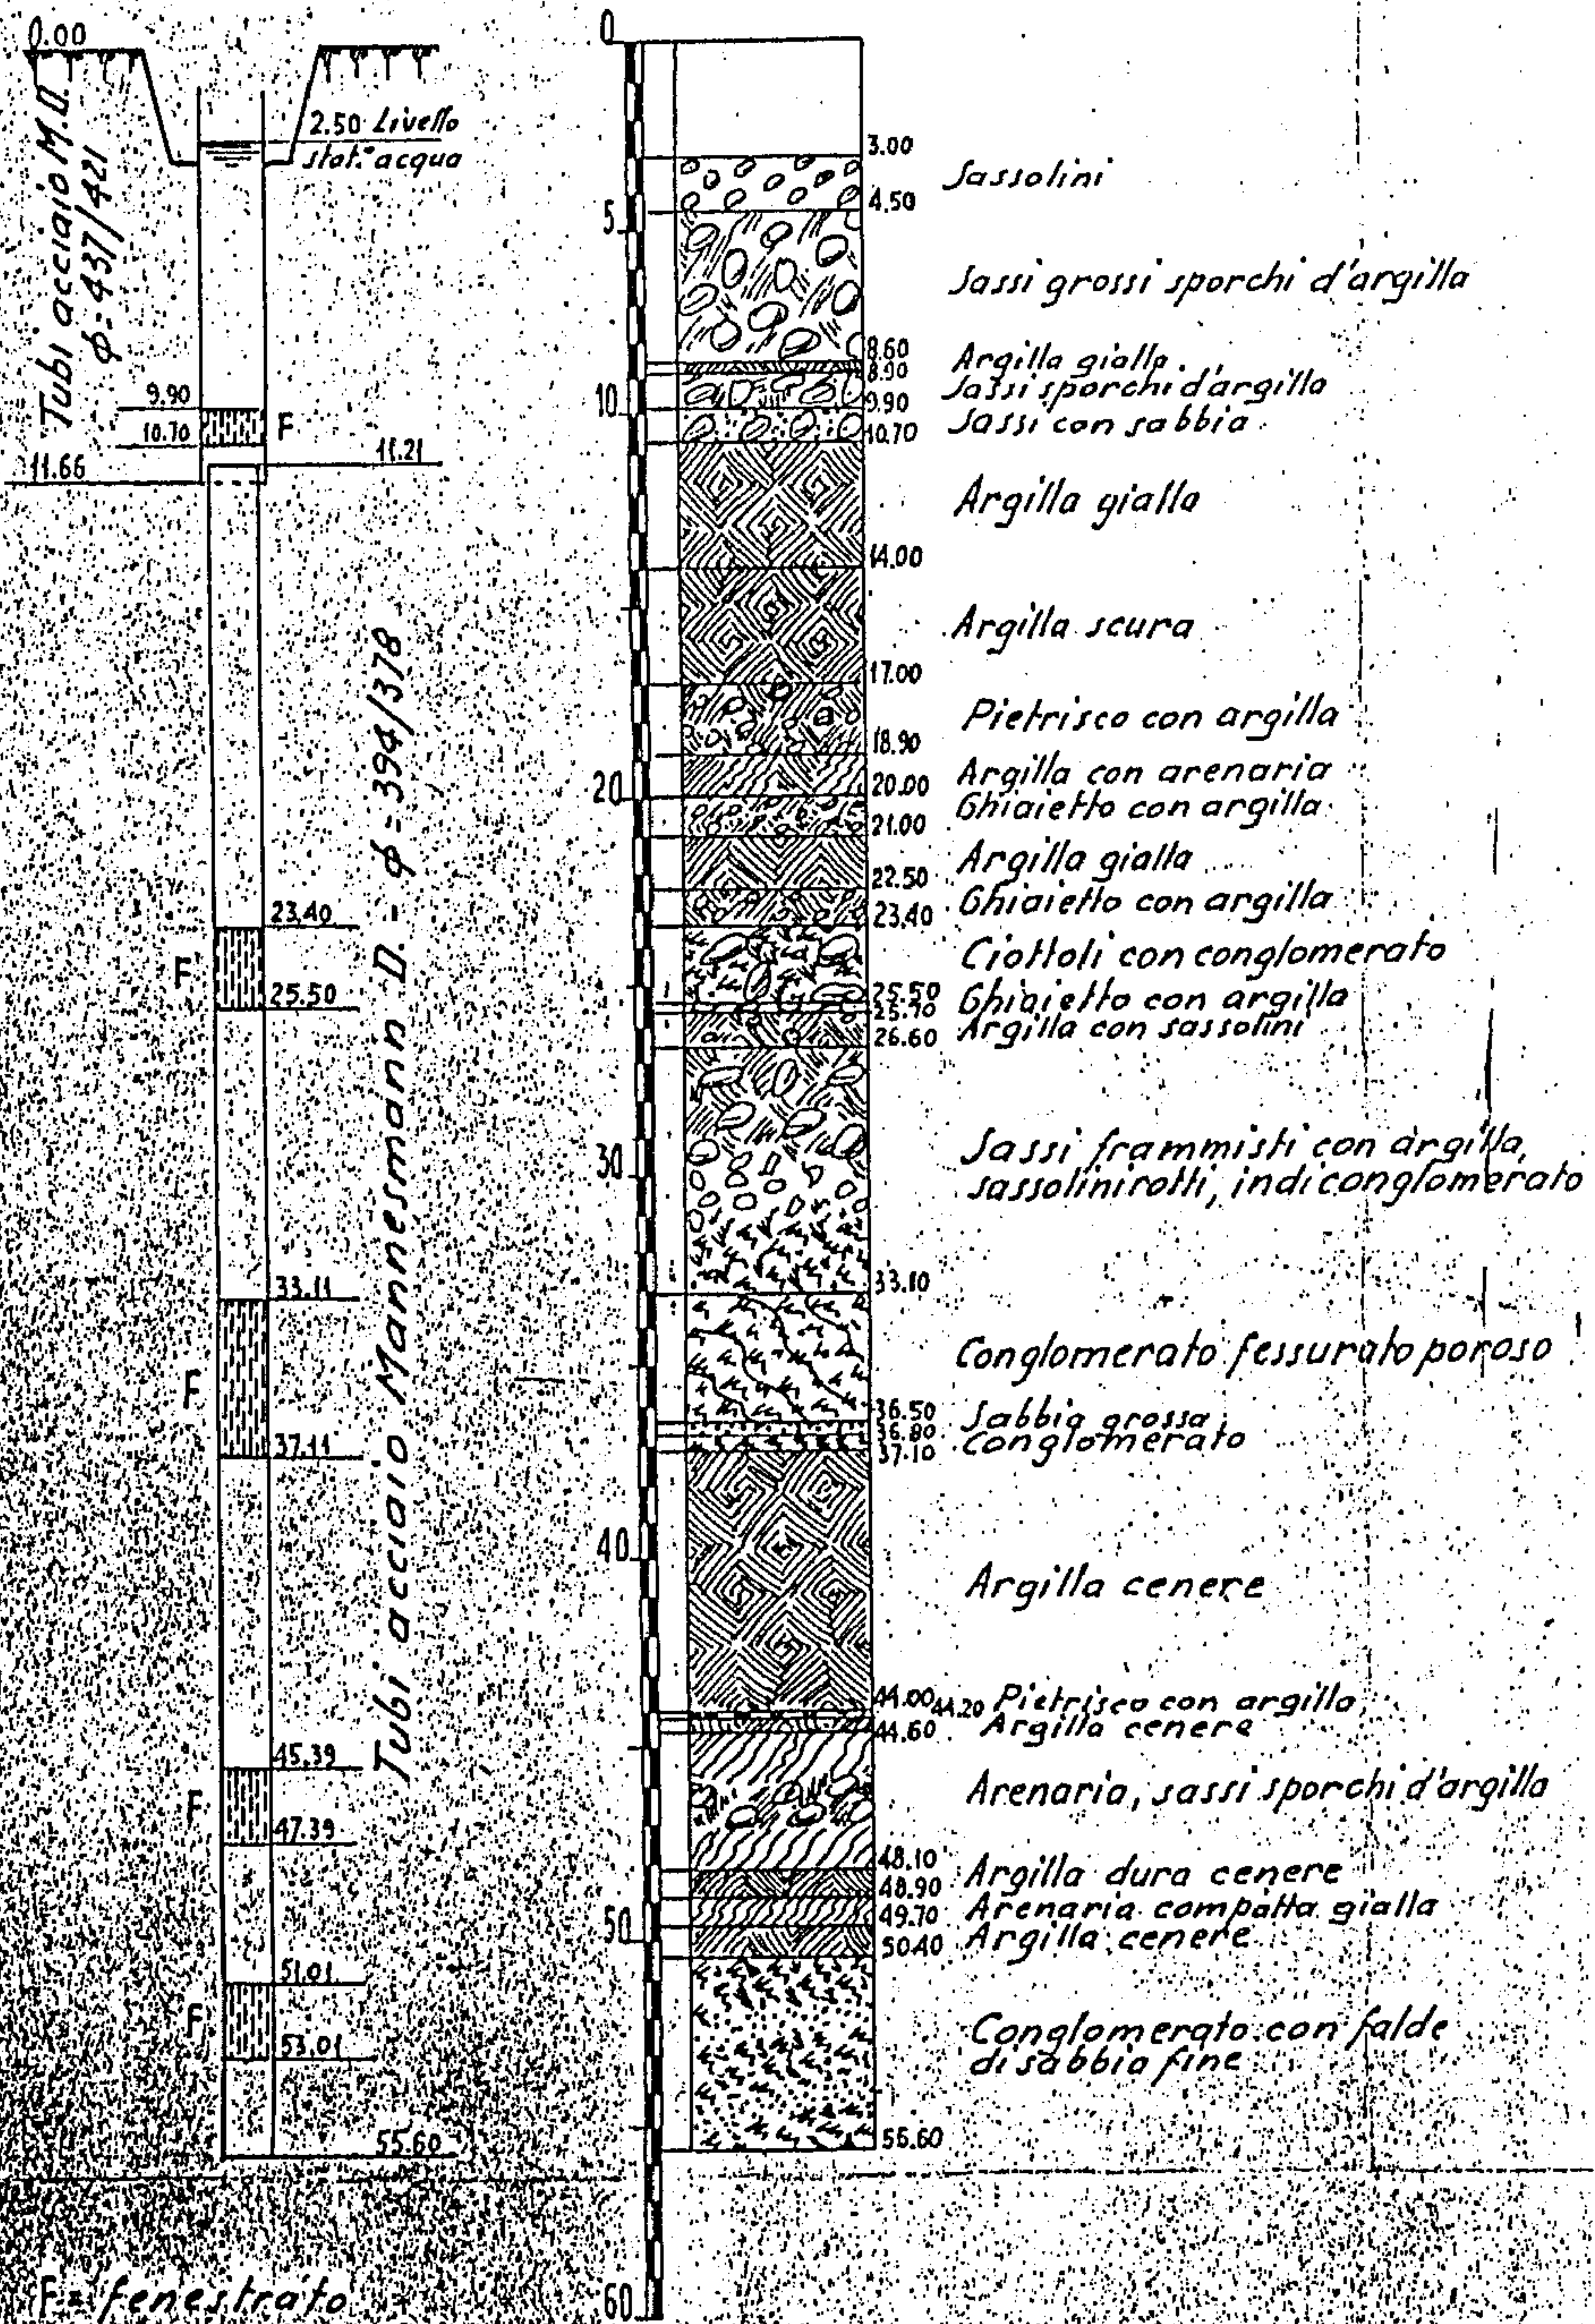 0.00
2.50 Livello
stat.° acqua
Tubi acciaio M.D.
φ=437/421
9.90
10.70
F
11.66
11.21
Tubi acciaio Mannesmann D. - φ=394/378
23.40
F
25.50
33.11
F
37.11
45.39
F
47.39
51.01
F
53.01
55.60
F= fenestrato
0
5
10
20
30
40
50
60
3.00
Sassolini
4.50
Sassi grossi sporchi d'argilla
8.60
Argilla gialla
8.90
Sassi sporchi d'argilla
9.90
Sassi con sabbia
10.70
Argilla gialla
14.00
Argilla scura
17.00
Pietrisco con argilla
18.90
Argilla con arenaria
20.00
Ghiaietto con argilla
21.00
Argilla gialla
22.50
Ghiaietto con argilla
23.40
Ciottoli con conglomerato
25.50
Ghiaietto con argilla
25.70
Argilla con sassolini
26.60
Sassi frammisti con argilla,
sassolini rotti, indi conglomerato
33.10
Conglomerato fessurato poroso
36.50
Sabbia grossa
36.80
Conglomerato
37.10
Argilla cenere
44.00
44.20 Pietrisco con argilla
44.60 Argilla cenere
Arenaria, sassi sporchi d'argilla
48.10
Argilla dura cenere
48.90
Arenaria compatta gialla
49.70
Argilla cenere
50.40
Conglomerato con falde
di sabbia fine
55.60